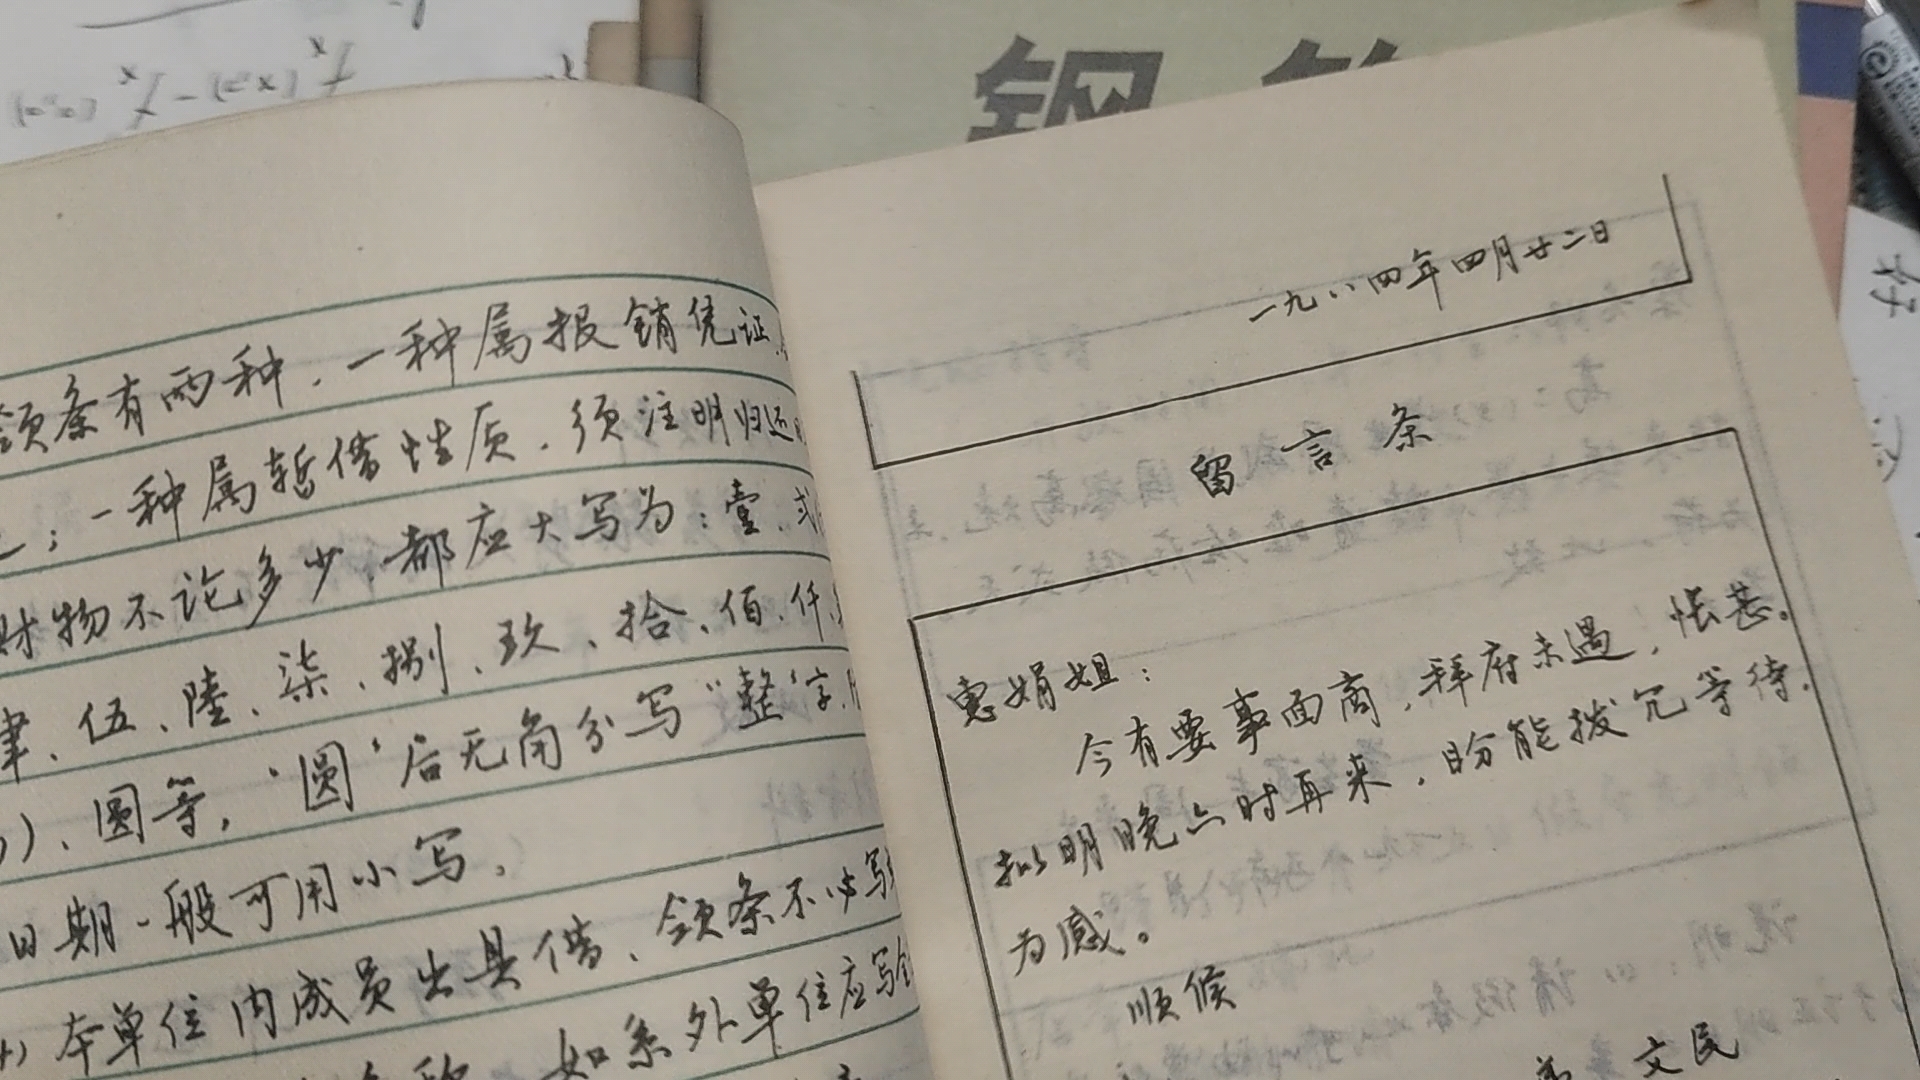 钢
领条有两种，一种属报销凭证，
；一种属暂借性质，须注明归还
财物不论多少，都应大写为：壹、弍
肆、伍、陸、柒、捌、玖、拾、佰、仟、
）、圆等，“圆”后无角分写“整”字，
日期一般可用小写。
本单位内成员出具借、领条不必写
如系外单位应写
一九八四年四月廿二日
留言条
惠娟姐：
今有要事面商，拜府未遇，怅甚。
拟明晚六时再来，盼能拨冗等待，
为感。
顺候
弟 文民
好